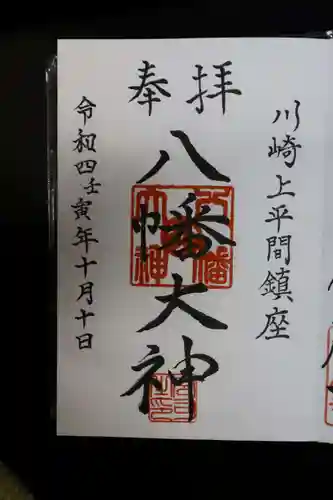 奉拝
川崎上平間鎮座
八幡大神
令和四壬寅年十月十日
八幡大神